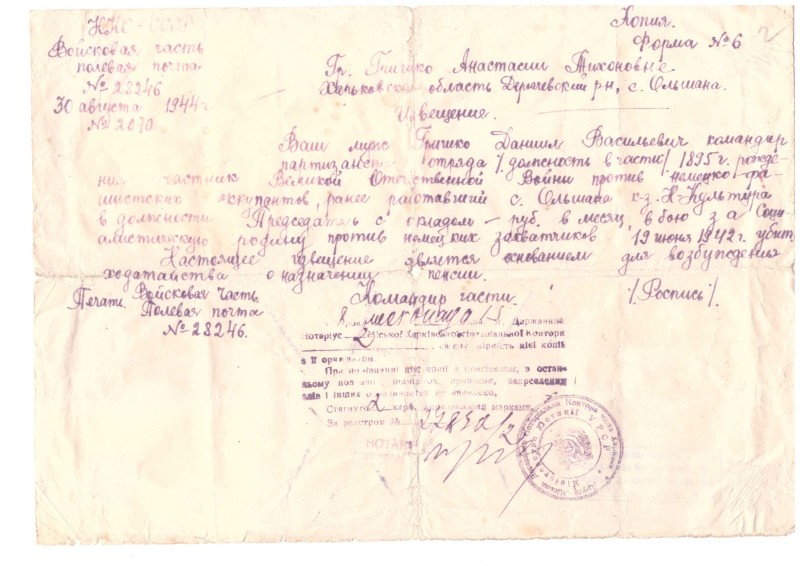 НКО - СССР
Войсковая часть
полевая почта
№ 28246
30 августа 1944 г
№ 2070
Копия.
Форма № 6
2
Гр. Гришко Анастасии Тихоновне
Харьковской область Дергачевский р-н, с. Ольшана.
Извещение.
Ваш муж Гришко Даниил Васильевич командир
партизанск отряда /должность в части/ 1895 г. рожде-
ния участник Великой Отечественной Войны против немецко-фа-
шистских оккупантов, ранее работавший с. Ольшана к-з. Н-Культура
в должности Председатель с окладом — руб. в месяц, в бою за Соци-
алистическую родину против немецких захватчиков 19 июня 1942 г. убит
Настоящее извещение является основанием для возбуждения
ходатайства о назначении пенсии.
Печать Войсковая Часть
Полевая почта
№ 28246.
Командир части. /Роспись/
Державний
Нотаріус 2 Харківської Нотаріальної Контори
вірність цієї копії
з її оригіналом.
При порівнянні цієї копії з оригіналом, в остан-
ньому подчисток, приписок, закреслених
слів і інших особливостей не виявлено.
Стягнуто 2 карб. марками.
За реєстром № 27250/2
НОТАР